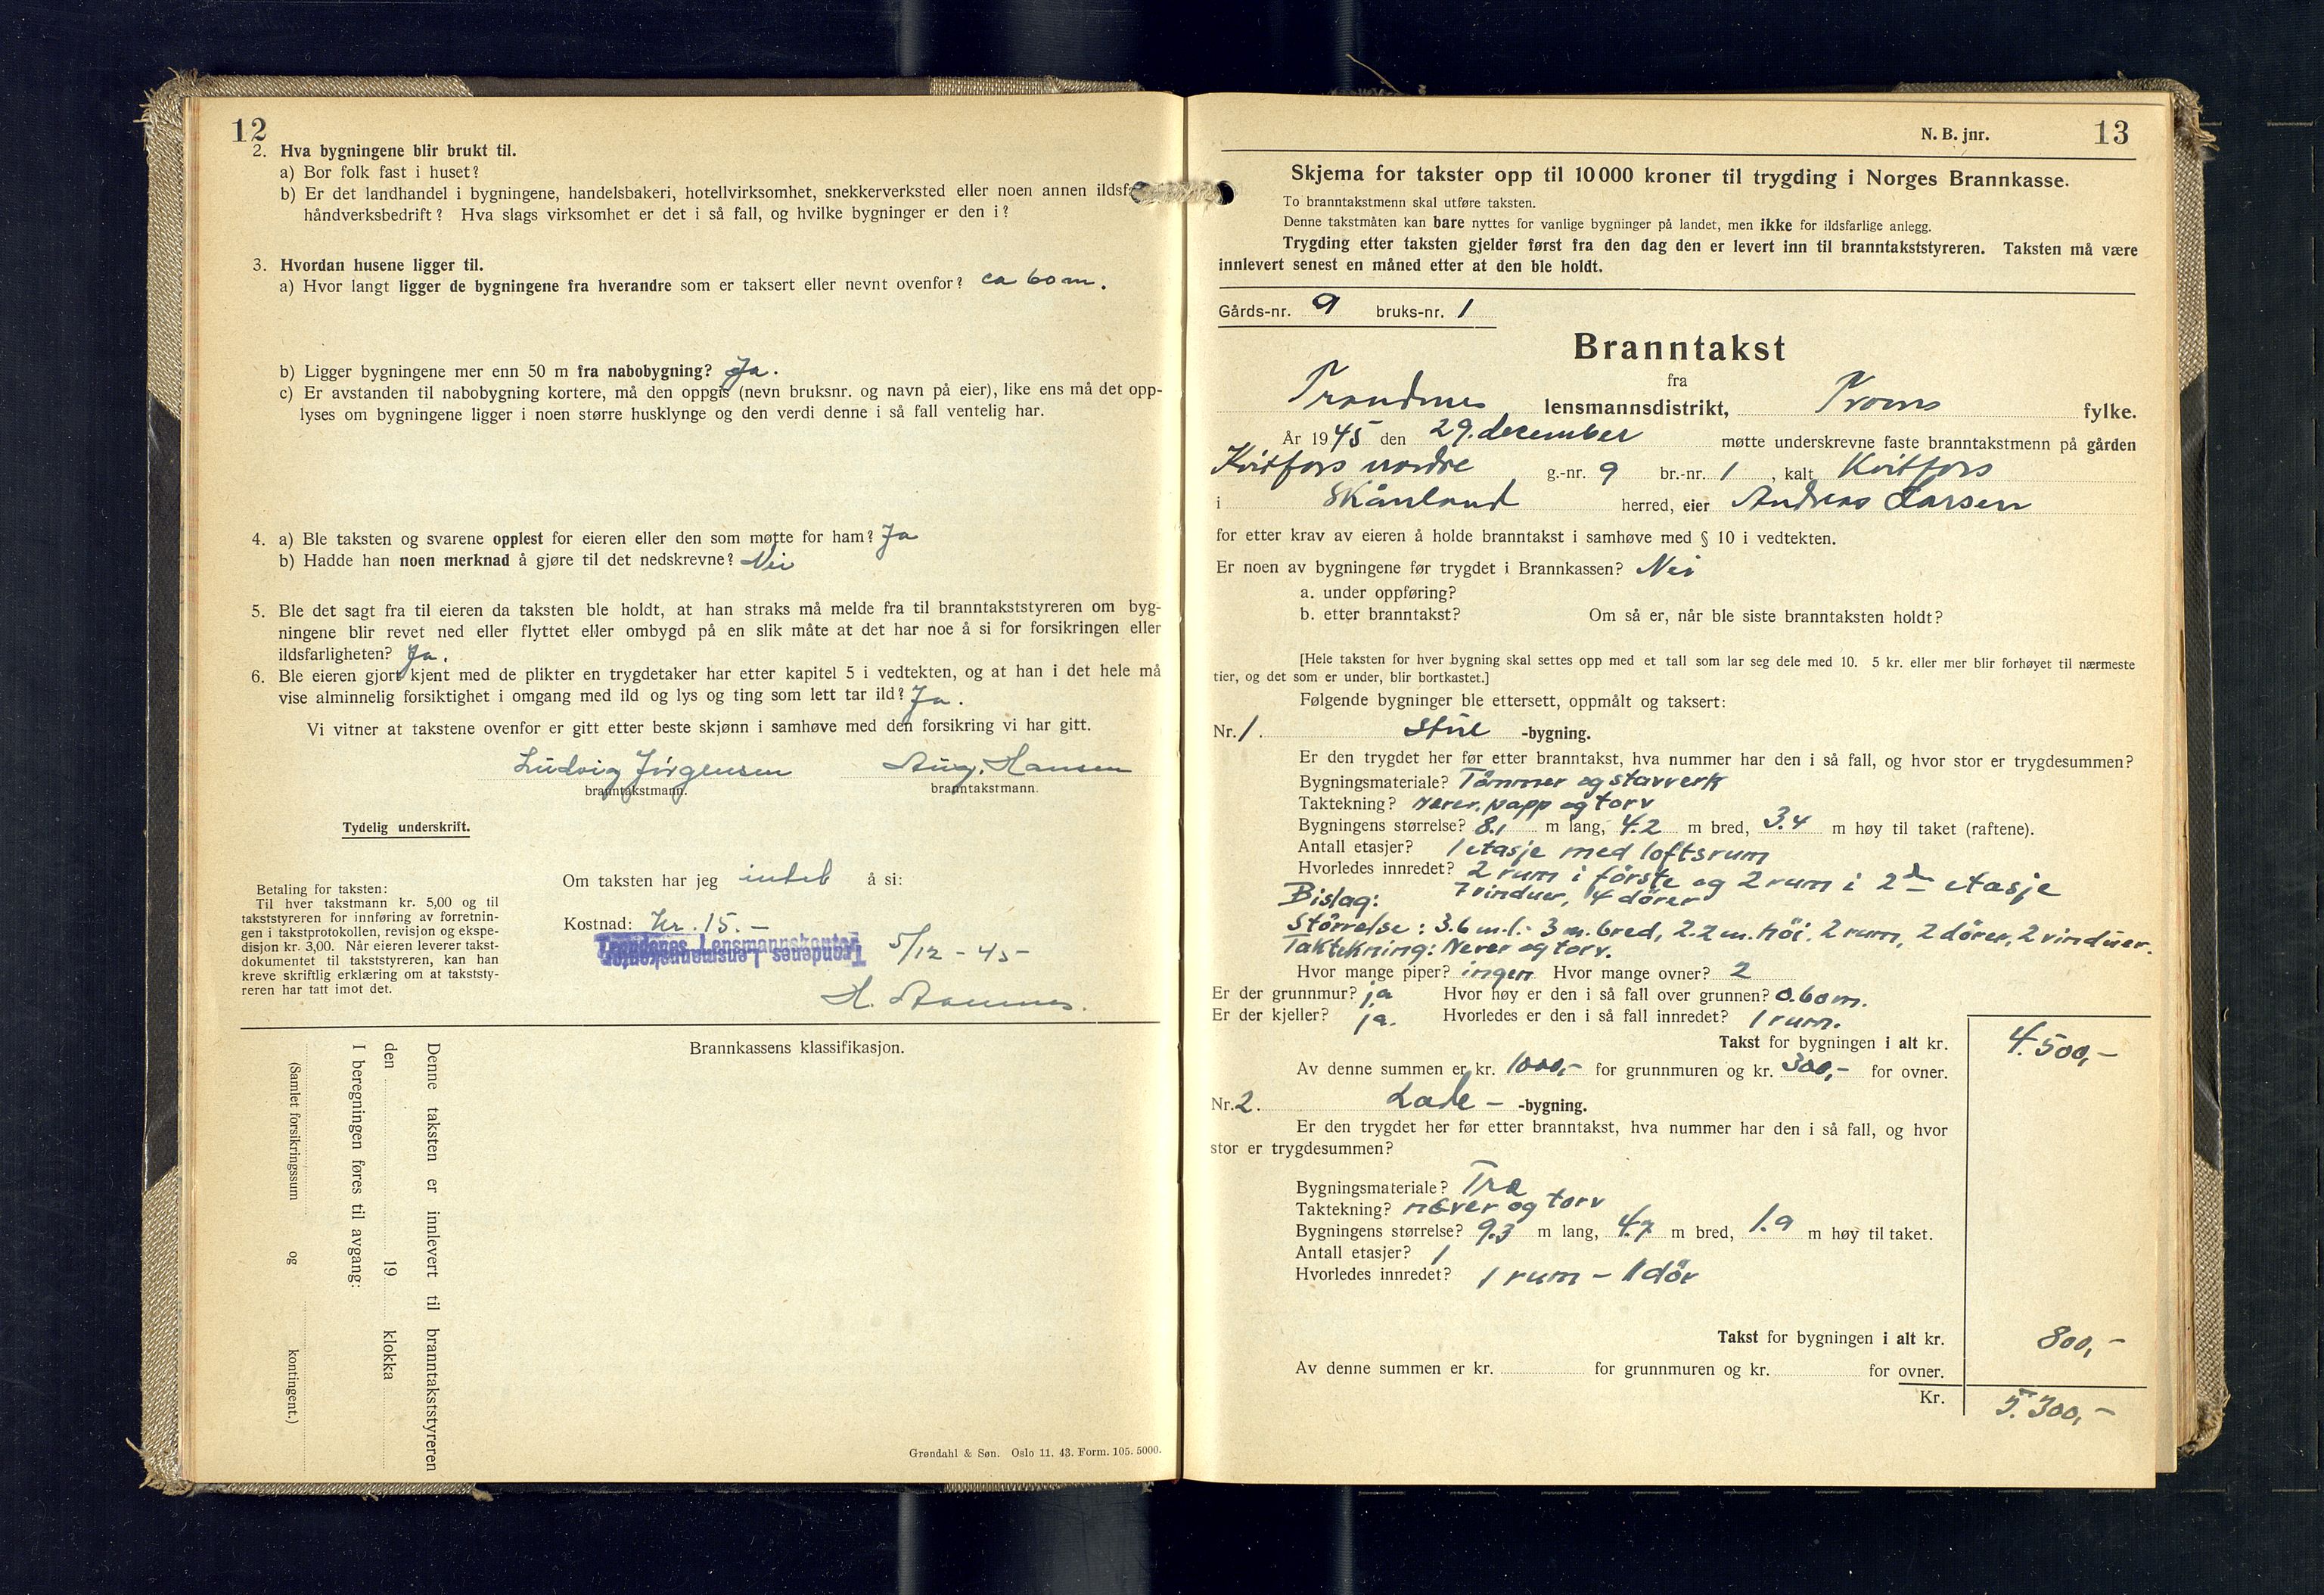 12
2. Hva bygningene blir brukt til.
a) Bor folk fast i huset?
b) Er det landhandel i bygningene, handelsbakeri, hotellvirksomhet, snekkerverksted eller noen annen ildsfa
håndverksbedrift? Hva slags virksomhet er det i så fall, og hvilke bygninger er den i?
3. Hvordan husene ligger til.
a) Hvor langt ligger de bygningene fra hverandre som er taksert eller nevnt ovenfor? ca 60 m.
b) Ligger bygningene mer enn 50 m fra nabobygning? Ja.
c) Er avstanden til nabobygning kortere, må den oppgis (nevn bruksnr. og navn på eier), like ens må det opp-
lyses om bygningene ligger i noen større husklynge og den verdi denne i så fall ventelig har.
4. a) Ble taksten og svarene opplest for eieren eller den som møtte for ham? Ja
b) Hadde han noen merknad å gjøre til det nedskrevne? Nei
5. Ble det sagt fra til eieren da taksten ble holdt, at han straks må melde fra til branntakststyreren om byg-
ningene blir revet ned eller flyttet eller ombygd på en slik måte at det har noe å si for forsikringen eller
ildsfarligheten? Ja.
6. Ble eieren gjort kjent med de plikter en trygdetaker har etter kapitel 5 i vedtekten, og at han i det hele må
vise alminnelig forsiktighet i omgang med ild og lys og ting som lett tar ild? Ja.
Vi vitner at takstene ovenfor er gitt etter beste skjønn i samhøve med den forsikring vi har gitt.
Ludvig Jørgensen Aug. Hansen
branntakstmann. branntakstmann.
Tydelig underskrift.
Betaling for taksten:
Til hver takstmann kr. 5,00 og til
takststyreren for innføring av forretnin-
gen i takstprotokollen, revisjon og ekspe-
disjon kr. 3,00. Når eieren leverer takst-
dokumentet til takststyreren, kan han
kreve skriftlig erklæring om at takststy-
reren har tatt imot det.
Om taksten har jeg intet å si:
Kostnad: Kr. 15.-
Trondenes Lensmannskontor
Trondenes Lensmannskontor
5/12 - 45 -
Brannkassens klassifikasjon.
Denne taksten er innlevert til branntakststyreren
den 19 klokka
I beregningen føres til avgang:
(Samlet forsikringssum og kontingent.)
Grøndahl & Søn. Oslo 11. 43. Form. 105. 5000.
N. B. jnr. 13
Skjema for takster opp til 10 000 kroner til trygding i Norges Brannkasse.
To branntakstmenn skal utføre taksten.
Denne takstmåten kan bare nyttes for vanlige bygninger på landet, men ikke for ildsfarlige anlegg.
Trygding etter taksten gjelder først fra den dag den er levert inn til branntakststyreren. Taksten må være
innlevert senest en måned etter at den ble holdt.
Gårds-nr. 9 bruks-nr. 1
Branntakst
fra
Trondenes lensmannsdistrikt, Troms fylke.
År 1945 den 29. december møtte underskrevne faste branntakstmenn på gården
Kvitfors nordre g.-nr. 9 br.-nr. 1, kalt Kvitfors
i Skånland herred, eier Andreas Larsen
for etter krav av eieren å holde branntakst i samhøve med § 10 i vedtekten.
Er noen av bygningene før trygdet i Brannkassen? Nei
a. under oppføring?
b. etter branntakst? Om så er, når ble siste branntaksten holdt?
[Hele taksten for hver bygning skal settes opp med et tall som lar seg dele med 10. 5 kr. eller mer blir forhøyet til nærmeste
tier, og det som er under, blir bortkastet.]
Følgende bygninger ble ettersett, oppmålt og taksert:
Nr. 1. Stue -bygning.
Er den trygdet her før etter branntakst, hva nummer har den i så fall, og hvor stor er trygdesummen?
Bygningsmateriale? Tömmer og stavverk
Taktekning? Never, papp og torv
Bygningens størrelse? 8.1 m lang, 4.2 m bred, 3.4 m høy til taket (raftene).
Antall etasjer? 1 etasje med loftsrum
Hvorledes innredet? 2 rum i förste og 2 rum i 2den etasje
7 vinduer, 4 dörer
Bislag:
Störrelse: 3.6 m. l. - 3 m. bred, 2.2 m. höi. 2 rum, 2 dörer, 2 vinduer.
Taktekning: Never og torv.
Hvor mange piper? ingen Hvor mange ovner? 2
Er der grunnmur? ja Hvor høy er den i så fall over grunnen? 0.60 m.
Er der kjeller? ja. Hvorledes er den i så fall innredet? 1 rum.
Takst for bygningen i alt kr. 4.500,-
Av denne summen er kr. 1000,- for grunnmuren og kr. 300,- for ovner.
Nr. 2. Lade - -bygning.
Er den trygdet her før etter branntakst, hva nummer har den i så fall, og hvor
stor er trygdesummen?
Bygningsmateriale? Tre
Taktekning? never og torv
Bygningens størrelse? 9.3 m lang, 4.7 m bred, 1.9 m høy til taket.
Antall etasjer? 1
Hvorledes innredet? 1 rum - 1 dör
Takst for bygningen i alt kr. 800,-
Av denne summen er kr. for grunnmuren og kr. for ovner.
Kr. 5.300,-